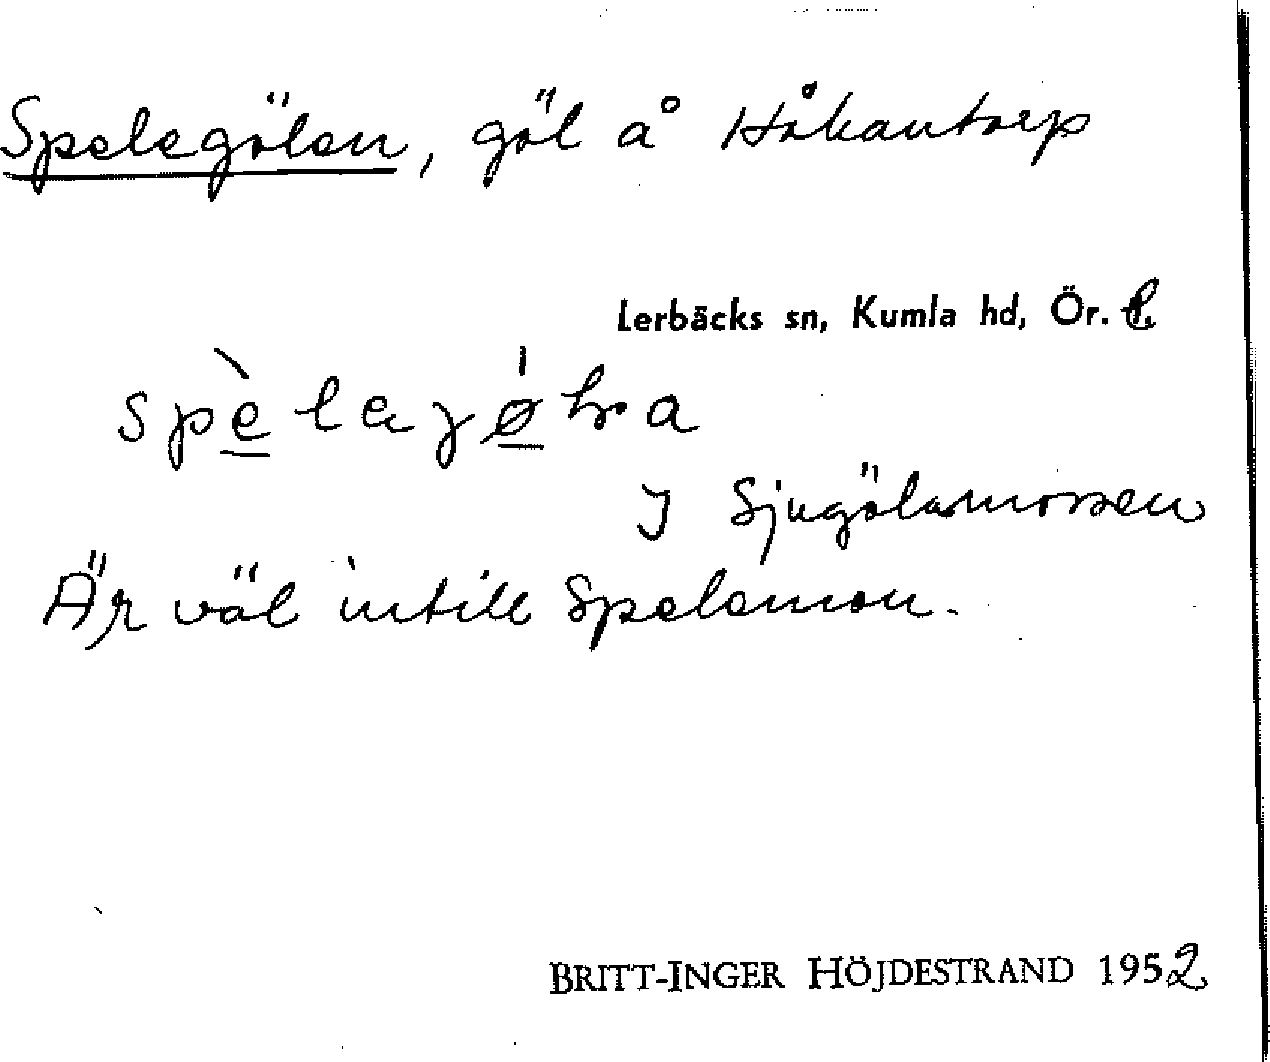 Spelegölen, göl å Håkantorp
Lerbäcks sn, Kumla hd, Ör. l.
I Sjugölamossen
Är väl intill Spelemon.
BRITT-INGER HÖJDESTRAND 1952